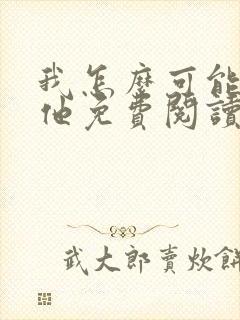 我怎麼可能
他免費閱讀
武大郎賣炊餅